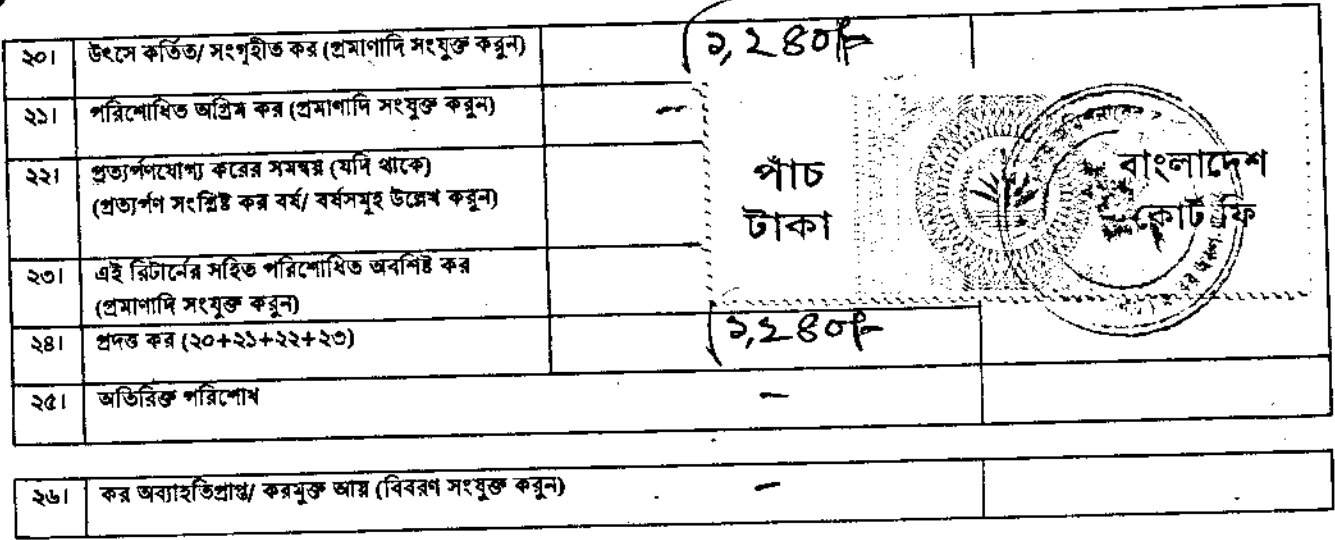 ২০। উৎসে কর্তিত/ সংগৃহীত কর (প্রমাণাদি সংযুক্ত করুন) ১,২৪০/-
২১। পরিশোধিত অগ্রিম কর (প্রমাণাদি সংযুক্ত করুন) -
২২। প্রত্যর্পণযোগ্য করের সমন্বয় (যদি থাকে)
(প্রত্যর্পণ সংশ্লিষ্ট কর বর্ষ/ বর্ষসমূহ উল্লেখ করুন)
পাঁচ
টাকা
বাংলাদেশ
কোর্ট ফি
২৩। এই রিটার্নের সহিত পরিশোধিত অবশিষ্ট কর
(প্রমাণাদি সংযুক্ত করুন)
২৪। প্রদত্ত কর (২০+২১+২২+২৩) ১,২৪০/-
২৫। অতিরিক্ত পরিশোধ -
২৬। কর অব্যাহতিপ্রাপ্ত/ করমুক্ত আয় (বিবরণ সংযুক্ত করুন) -